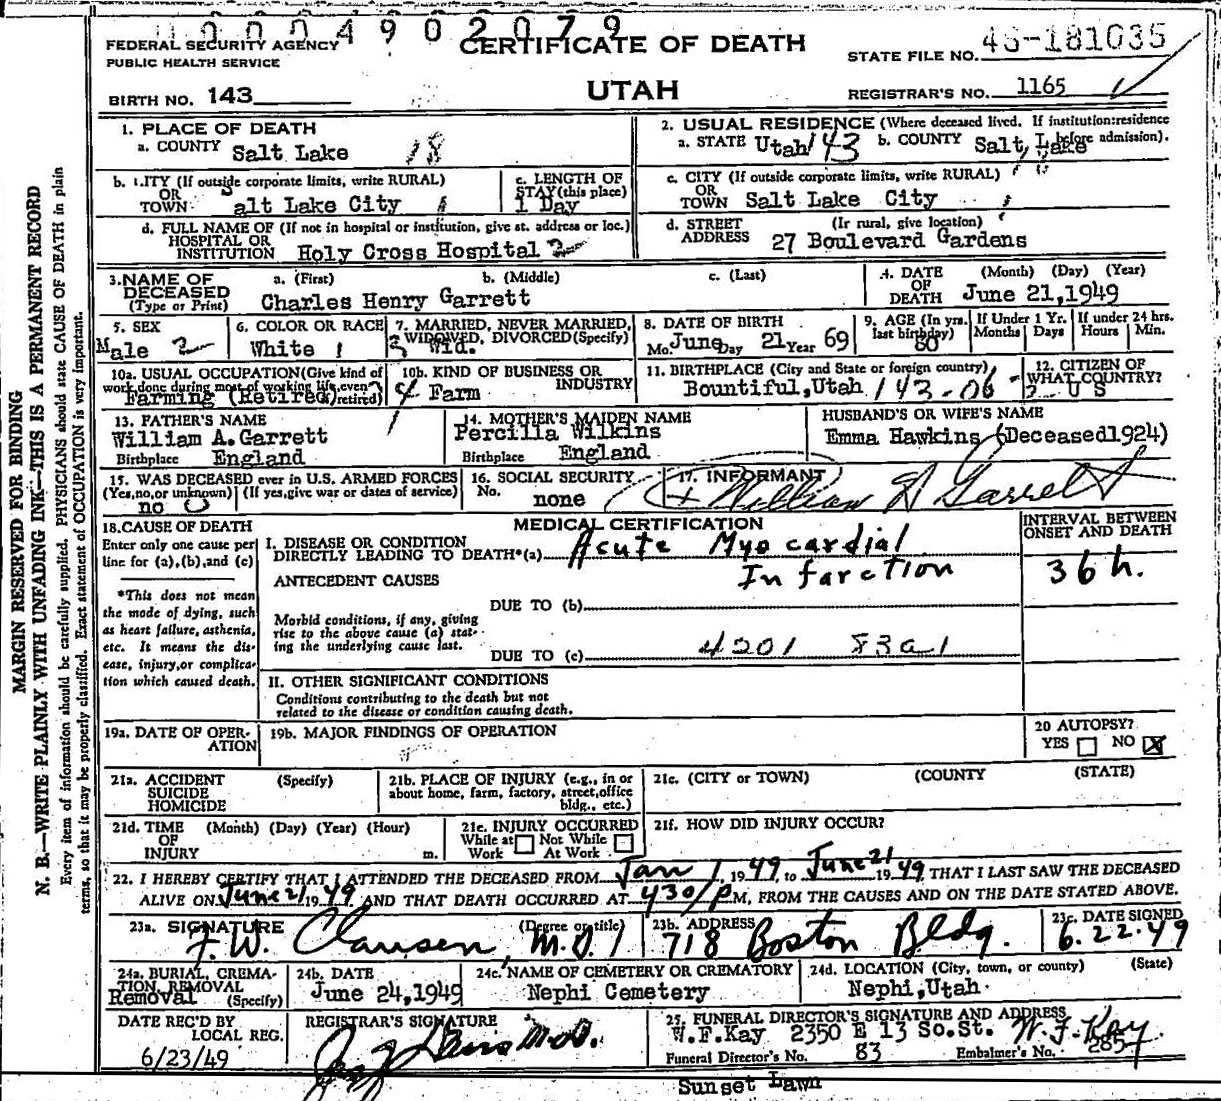 0004902079
FEDERAL SECURITY AGENCY
PUBLIC HEALTH SERVICE
CERTIFICATE OF DEATH
STATE FILE NO. 48-181035
BIRTH NO. 143
UTAH
REGISTRAR'S NO. 1165
1. PLACE OF DEATH
a. COUNTY Salt Lake 18
2. USUAL RESIDENCE (Where deceased lived. If institution:residence before admission).
a. STATE Utah 143 b. COUNTY Salt Lake
b. CITY (If outside corporate limits, write RURAL)
OR
TOWN Salt Lake City 1
c. LENGTH OF
STAY (this place)
1 Day
c. CITY (If outside corporate limits, write RURAL)
OR
TOWN Salt Lake City
d. FULL NAME OF (If not in hospital or institution, give st. address or loc.)
HOSPITAL OR
INSTITUTION Holy Cross Hospital 2
d. STREET (If rural, give location)
ADDRESS 27 Boulevard Gardens
3. NAME OF DECEASED (Type or Print)
a. (First) b. (Middle) c. (Last)
Charles Henry Garrett
4. DATE OF DEATH (Month) (Day) (Year)
June 21,1949
5. SEX
Male 2
6. COLOR OR RACE
White 1
7. MARRIED, NEVER MARRIED,
WIDOWED, DIVORCED(Specify)
3 Wid.
8. DATE OF BIRTH
Mo. June Day 21 Year 69
9. AGE (In yrs. last birthday)
80
If Under 1 Yr.
Months Days
If under 24 hrs.
Hours Min.
10a. USUAL OCCUPATION(Give kind of
work done during most of working life, even
Farming (Retired) retired)
10b. KIND OF BUSINESS OR
INDUSTRY
4 Farm
11. BIRTHPLACE (City and State or foreign country)
Bountiful,Utah 143-06
12. CITIZEN OF
WHAT COUNTRY?
U S
13. FATHER'S NAME
William A.Garrett
Birthplace England
14. MOTHER'S MAIDEN NAME
Percilla Wilkins
Birthplace England
HUSBAND'S OR WIFE'S NAME
Emma Hawkins (Deceased1924)
15. WAS DECEASED ever in U.S. ARMED FORCES
(Yes,no,or unknown) (If yes,give war or dates of service)
no 0
16. SOCIAL SECURITY
No. none
17. INFORMANT
William A Garrett
18. CAUSE OF DEATH
Enter only one cause per
line for (a),(b),and (c)
*This does not mean
the mode of dying, such
as heart failure, asthenia,
etc. It means the dis-
ease, injury,or complica-
tion which caused death.
MEDICAL CERTIFICATION
I. DISEASE OR CONDITION
DIRECTLY LEADING TO DEATH*(a) Acute Myocardial
Infarction
INTERVAL BETWEEN
ONSET AND DEATH
36 h.
ANTECEDENT CAUSES
DUE TO (b)
Morbid conditions, if any, giving
rise to the above cause (a) stat-
ing the underlying cause last.
DUE TO (c) 4201
II. OTHER SIGNIFICANT CONDITIONS
Conditions contributing to the death but not
related to the disease or condition causing death.
19a. DATE OF OPER-
ATION
19b. MAJOR FINDINGS OF OPERATION
20 AUTOPSY?
YES NO X
21a. ACCIDENT (Specify)
SUICIDE
HOMICIDE
21b. PLACE OF INJURY (e.g., in or
about home, farm, factory, street,office
bldg., etc.)
21c. (CITY or TOWN) (COUNTY) (STATE)
21d. TIME (Month) (Day) (Year) (Hour)
OF
INJURY m.
21e. INJURY OCCURRED
While at Not While
Work At Work
21f. HOW DID INJURY OCCUR?
22. I HEREBY CERTIFY THAT I ATTENDED THE DECEASED FROM Jan 1, 1949, to June 21 1949 THAT I LAST SAW THE DECEASED
ALIVE ON June 21 1949 AND THAT DEATH OCCURRED AT 430 P M, FROM THE CAUSES AND ON THE DATE STATED ABOVE.
23a. SIGNATURE (Degree or title)
F. W. Clausen, M.D. 1
23b. ADDRESS
718 Boston Bldg.
23c. DATE SIGNED
6.22.49
24a. BURIAL, CREMA-
TION, REMOVAL
Removal (Specify)
24b. DATE
June 24,1949
24c. NAME OF CEMETERY OR CREMATORY
Nephi Cemetery
24d. LOCATION (City, town, or county) (State)
Nephi,Utah
DATE REC'D BY
LOCAL REG.
6/23/49
REGISTRAR'S SIGNATURE
M.D.
25. FUNERAL DIRECTOR'S SIGNATURE AND ADDRESS
W.F.Kay 2350 E 13 So.St. W. F. Kay
Funeral Director's No. 83 Embalmer's No. 285
Sunset Lawn
MARGIN RESERVED FOR BINDING
N. B.—WRITE PLAINLY WITH UNFADING INK—THIS IS A PERMANENT RECORD
Every item of information should be carefully supplied. PHYSICIANS should state CAUSE OF DEATH in plain
terms, so that it may be properly classified. Exact statement of OCCUPATION is very important.